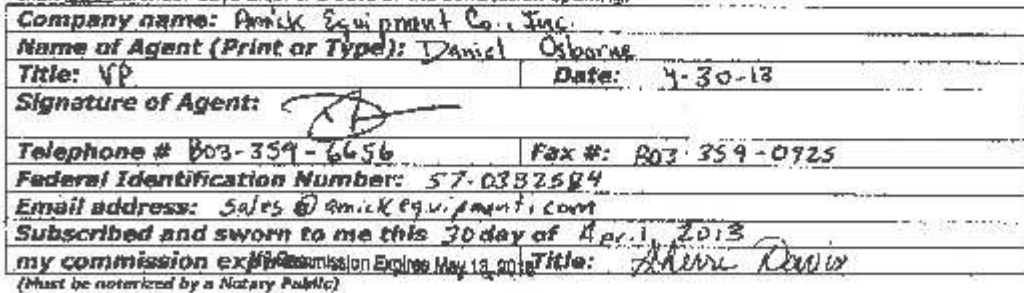 Company name: Amick Equipment Co., Inc.
Name of Agent (Print or Type): Daniel Osborne
Title: VP Date: 4-30-13
Signature of Agent:
Telephone # 803-359-6656 Fax #: 803-359-0925
Federal Identification Number: 57-0382584
Email address: Sales@amickequipment.com
Subscribed and sworn to me this 30 day of April, 2013
my commission Commission Expires May 13, Title: Sherri Davis
(Must be notarized by a Notary Public)